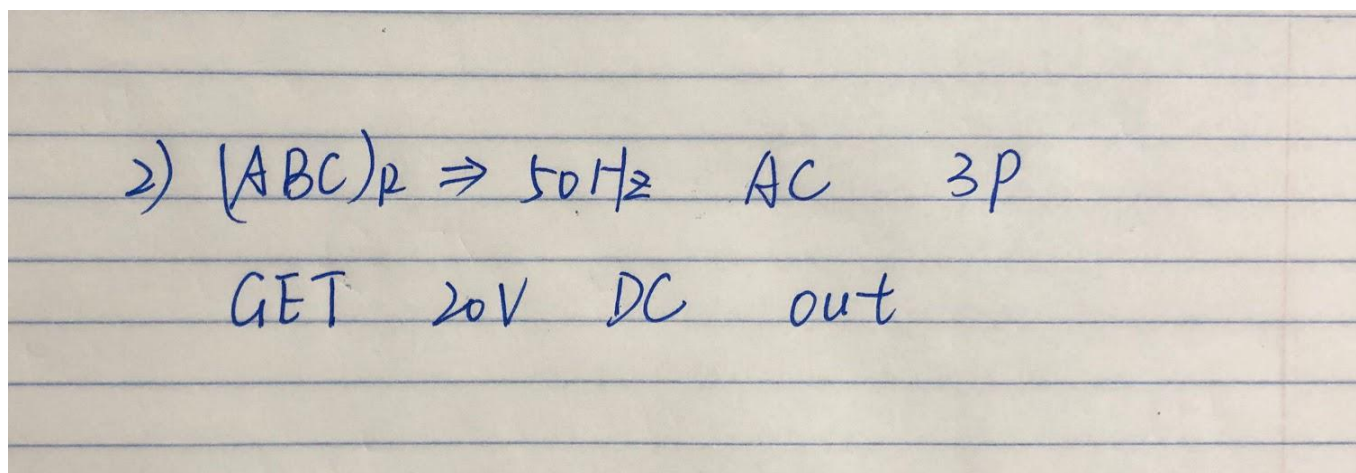 2) (ABC)R ⇒ 50Hz AC 3P
GET 20V DC out